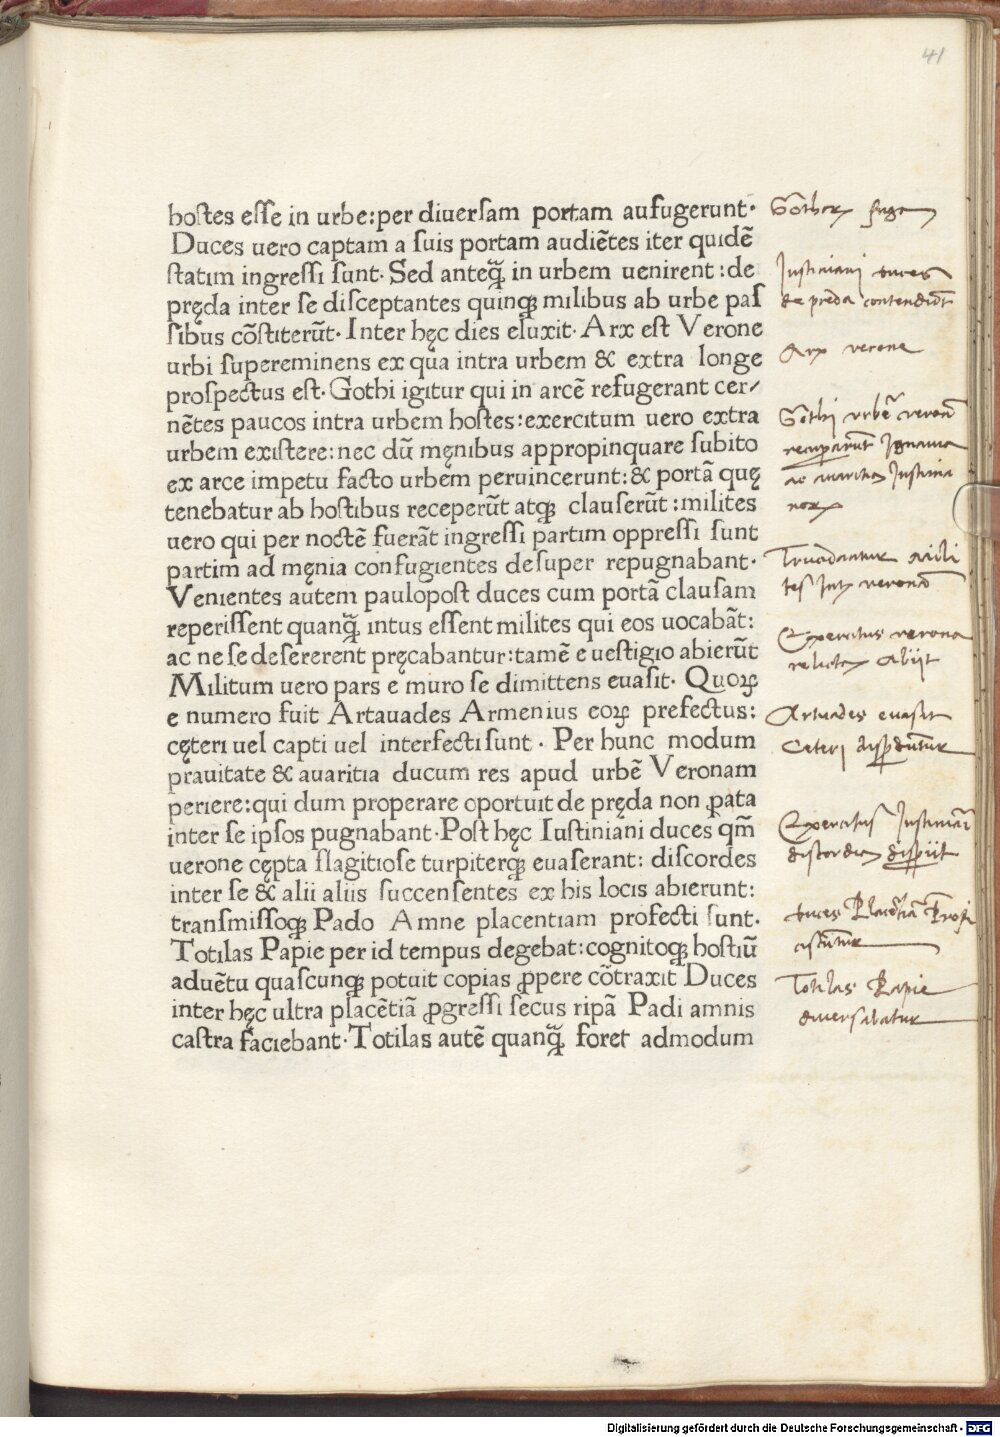 41
hostes esse in urbe:per diuersam portam aufugerunt·
Duces uero captam a suis portam audiētes iter quidē
statim ingressi sunt· Sed anteq̄ꝫ in urbem uenirent:de
pręda inter se disceptantes quinqꝫ milibus ab urbe pas
sibus cōstiterūt· Inter hęc dies eluxit· Arx est Verone
urbi supereminens ex qua intra urbem & extra longe
prospectus est· Gothi igitur qui in arcē refugerant cer/
nētes paucos intra urbem hostes:exercitum uero extra
urbem existere:nec dū męnibus appropinquare subito
ex arce impetu facto urbem peruincerunt:& portā quę
tenebatur ab hostibus receperūt atqꝫ clauserūt:milites
uero qui per noctē fuerāt ingressi partim oppressi sunt
partim ad męnia confugientes desuper repugnabant·
Venientes autem paulopost duces cum portā clausam
reperissent quanq̄ꝫ intus essent milites qui eos uocabāt:
ac ne se desererent pręcabantur:tamē e uestigio abierūt
Militum uero pars e muro se dimittens euasit· Quoꝝ
e numero fuit Artauades Armenius eoꝝ prefectus:
cęteri uel capti uel interfecti sunt· Per hunc modum
prauitate & auaritia ducum res apud urbē Veronam
periere:qui dum properare oportuit de pręda non ꝑata
inter se ipsos pugnabant· Post hęc Iustiniani duces qm̄
uerone cępta flagitiose turpiterqꝫ euaserant: discordes
inter se & alii aliis succensentes ex his locis abierunt:
transmissoqꝫ Pado Amne placentiam profecti sunt·
Totilas Papie per id tempus degebat:cognitoqꝫ hostiū
aduētu quascunqꝫ potuit copias ꝓpere cōtraxit Duces
inter hęc ultra placētiā ꝓgressi secus ripā Padi amnis
castra faciebant· Totilas autē quanq̄ꝫ foret admodum
Gothoꝝ fuga
Iustiniani duces
de preda contendūt
Arx verone
Gothi urbē veronā
recuperarūt Ignauia
ac auaritia Iustinia
noꝝ
Trucidantur mili
tes
Exercitus verona
relicta abiit
Artauades euasit
Ceteri
Exercitus Iustiniāi
discordia
duces Placētiā Profi
ciscūtur
Totilas Papie
diuersabatur
Digitalisierung gefördert durch die Deutsche Forschungsgemeinschaft · DFG